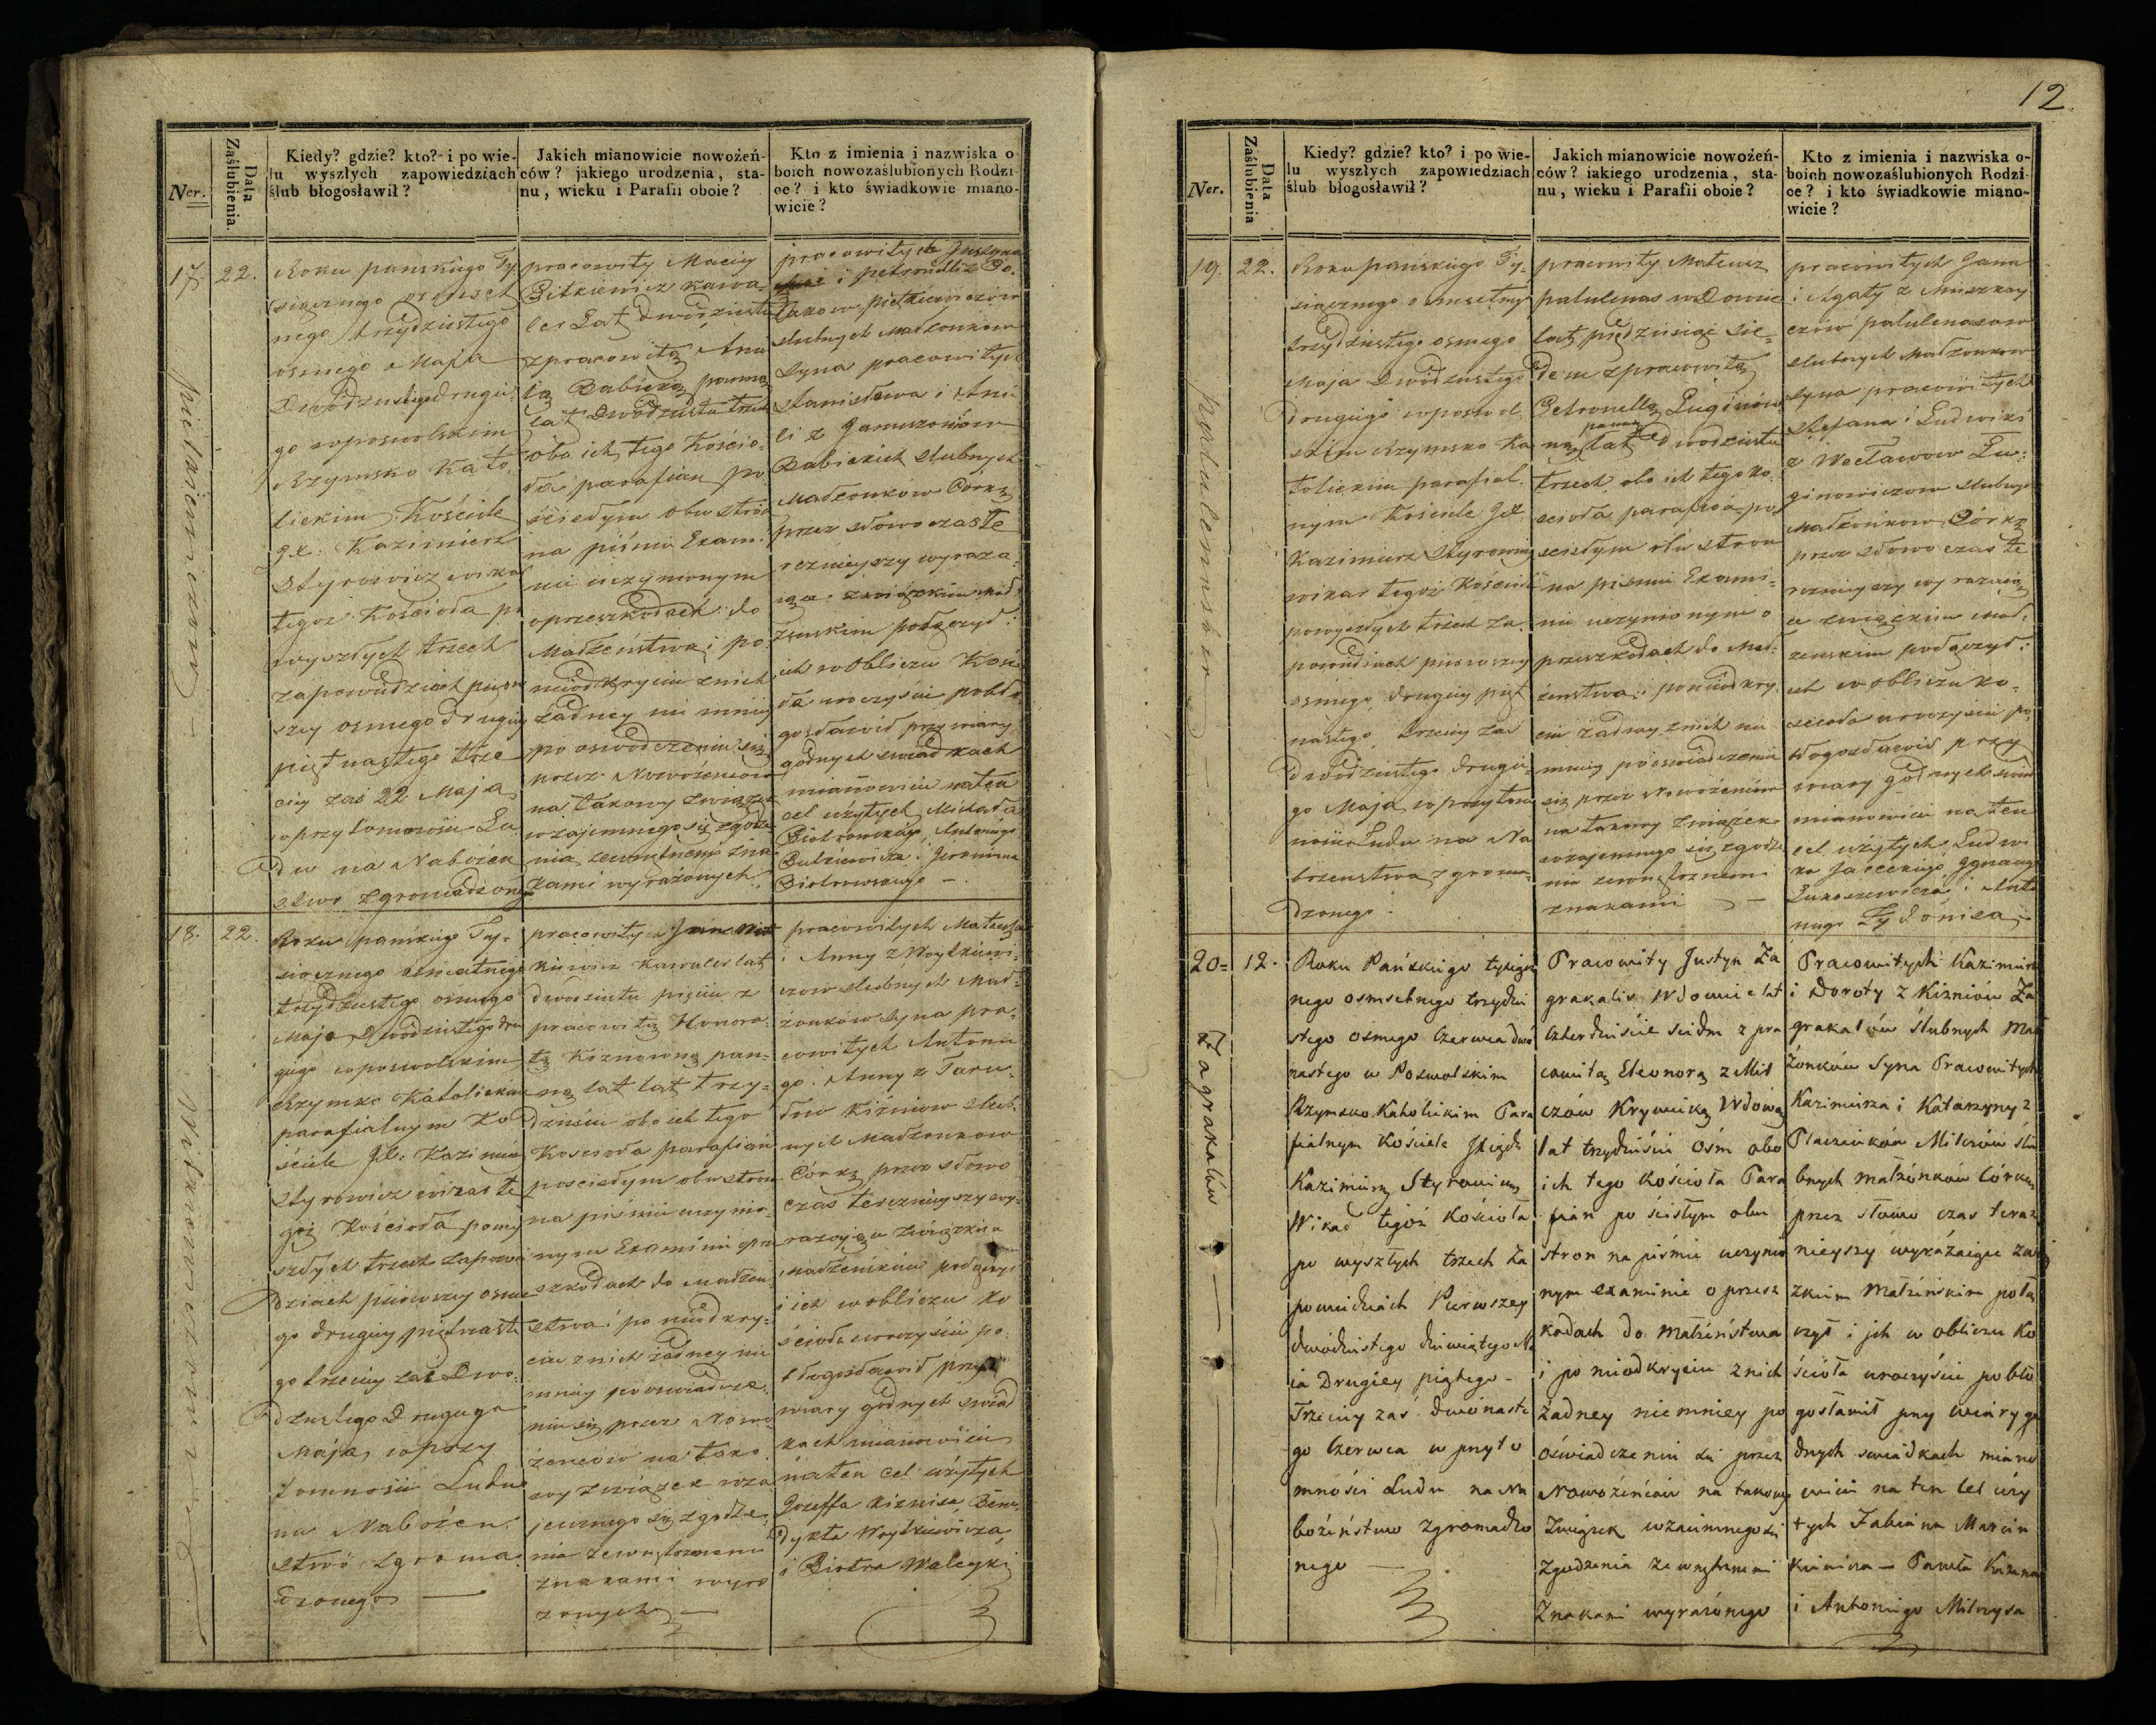 12
Ner.
Data Zaślubienia.
Kiedy? gdzie? kto? i po wie-
lu wyszłych zapowiedziach
ślub błogosławił?
Jakich mianowicie nowożeń-
ców? jakiego urodzenia, sta-
nu, wieku i Parafii oboie?
Kto z imienia i nazwiska o-
boich nowozaślubionych Rodzi
ce? i kto świadkowie miano-
wicie?
17. 22.
Roku pańskiego Ty-
siącznego
nego trzydziestego
osmego Maja
Dwudziestego drugie
go w poswolskim
Rzymsko Kato
lickim Kościele
JX. Kazimierz
Styrowicz wikar
tegoż Kościoła po
wyszłych trzech
zapowiedziach pierw
szey osmego drugiey
piętnastego trze
ciey zaś 22 Maja
w przytomności Lu
du na Nabożeń
stwo zgromadzonego
pracowity Maciey
Pitkiewicz kawa-
ler Lat dwudziestu
z pracowitą Anie
lą Babicką panną
lat Dwudziestu trzech
obo ich tego Kościo-
ła parafian po
ścisłym obu stron
na piśmie Exam-
nie uczynionym
o przeszkodach do
Małżeństwa i po
nieodkryciu znich
żadney nie mniey
po oswiadczeniu się
przez Nowożeńców
na takowy związek
wzajemnego się zgodze
nia zewnętrznemi zna
kami wyrażonych
pracowitych Justyna
i petronelli z Po-
Pietkiewiczów
slubnych Małżonków
Syna pracowitych
Stanisława i Anie
li z Januszoniów
Babickich slubnych
Małżonków Corkę
przez słowo czas te
raznieyszy wyraża
iące związkiem Mał
żenskim połączył i
ich w Obliczu Kościo
ła uroczyście pobło
gosławił przy wiary
godnych swiadkach
mianowicie na ten
cel użytych Michała
Piotrowskiego Antoniego
Butkiewicza i Jeronima
Piotrowskiego
18. 22.
Roku pańskiego Ty-
siącznego osmsetnego
trzydziestego osmego
Maja Dwudziestego dru
giego w poswolskim
Rzymsko Katolickim
parafialnym Ko
ściele JX. Kazimierz
Styrowicz wikar te
goż Kościoła po wy
szłych trzech zapowie
dziach pierwszey osme
go drugiey piętnaste
go trzeciey zaś Dwu
dziestego Drugiego
Maja w przy
tomności Ludu
na Nabożeń
stwo zgroma
dzonego
pracowity Jan Wit
kiewicz Kawaler lat
dwudziestu pięciu z
pracowitą Honora
tą Kiznowną pan-
ną lat lat trzy-
dziestu obo ich tego
Kościoła parafian
po scisłym obu stron
na piśmie uczynio-
nym Examinie o prze
szkodach do Małżeń
stwa i po nieodkry-
ciu z nich żadney nie
mniey po oswiadcze-
niu się przez Nowo
żeńców na tako
wy związek wza
jemnego się zgodze
nia zewnętrznemi
znakami wyra
żonych
pracowitych Mateusza
i Anny z Woytkiewi-
czow slubnych Mał-
żonków Syna pra-
cowitych Antonie
go i Anny z
Kiżniow slub-
nych Małżonkow
Córkę przez słowo
czas teraznieyszy wy-
rażaiące związkiem
Małżeńskim połączył
i ich w obliczu Ko
ścioła uroczyście po-
błogosławił przy
wiary godnych swiad
kach mianowicie
na ten cel użytych
Jozeffa Kiznisa Bene
dykta Woytkiewicza
i Piotra
Witkiewiczow
19. 22.
Roku pańskiego Ty-
siącznego osmsetnego
trzydziestego osmego
Maja Dwudziestego
drugiego w poswol-
skim Rzymsko Ka
tolickim parafial-
nym Kościele JX.
Kazimierz Styrowicz
wikar tegoż Kościoła
po wyszłych trzech za-
powiedziach pierwszey
osmego drugiey pięt
nastego trzeciey zaś
dwudziestego drugie-
go Maja w przytom
ności Ludu na Na
bożenstwa zgroma-
dzonego
pracowity Mateusz
patulenas wDowiec
lat pięćdziesiąt sie-
dem z pracowitą
Petronellą Luginow
ną panną lat dwudziestu
trzech obo ich tego ko-
scioła parafian po
scisłym obu stron
na pismie Exami-
nie uczynionym o
przeszkodach do Mał-
żenstwa i po nieodkry
ciu żadney znich nie
mniey po oswiadczeniu
się przez Nowożeńców
na takowy związek
wzajemnego się zgodze
nia zewnętrznemi
znakami
pracowitych Jana
i Agaty z
patulenasow
slubnych Małżonkow
Syna pracowitych
Stefana i Ludwiki
z Wecławow Lu-
ginowiczow slubnych
Małżonkow Córkę
przez słowo czas te
raznieyszy wyrażaią
ce związkiem mał-
żenskim połączył i
ich w obliczu ko-
scioła uroczyscie po
błogosławił przy
wiary godnych swiad
mianowicie na ten
cel użytych Ludwi
ka Ignacego
Lukoszewicza i Anto
niego
20= 12.
Zagrakalow
Roku Pańskiego tysiącz
nego osmsetnego trzydzie
stego osmego Czerwca dwu
nastego w Poswolskim
Rzymsko Katholickim Para
fialnym Kościele JXiądz
Kazimierz Styrowicz
Wikar tegoż Kościoła
po wyszłych trzech Za
powiedziach Pierwszey
dwudziestego dziewiątego Ma
ia Drugiey piątego
Trzeciey zaś dwunaste
go Czerwca w przyto
mności Ludu na Na
bożeństwo zgromadzo
nego
Pracowity Justyn Za
grakalis Wdowiec lat
Czterdzieście siedm z pra
cowitą Eleonorą z Mil
czów Krywicką Wdową
lat trzydzieści Ośm obo
ich tego Kościoła Para
fian po ścisłym obu
stron na piśmie uczynio
nym examinie o przesz
kodach do Małżeństwa
i po nieodkryciu z nich
Żadney niemniey po
oświadczeniu się przez
Nowożeńców na takowy
Związek wzaiemnego się
Zgodzenia zewnętrznemi
Znakami wyrażonego
Pracowitych Kazimierza
i Doroty z Kizniów Za
grakalów ślubnych Mał
żonków Syna Pracowitych
Kazimierza i Katarzyny z
Milczów ślu
bnych małżonków Córkę
przez słowo czas teraz
nieyszy wyrażaiące Zwią
zkiem Małżeńskim połą
czył i ich w obliczu Ko
ścioła uroczyście pobło
gosławił przy wiary go
dnych swiadkach miano
wicie na ten cel uży
tych Fabiana Marcin
kiewicza Pawła
i Antoniego Milczysa